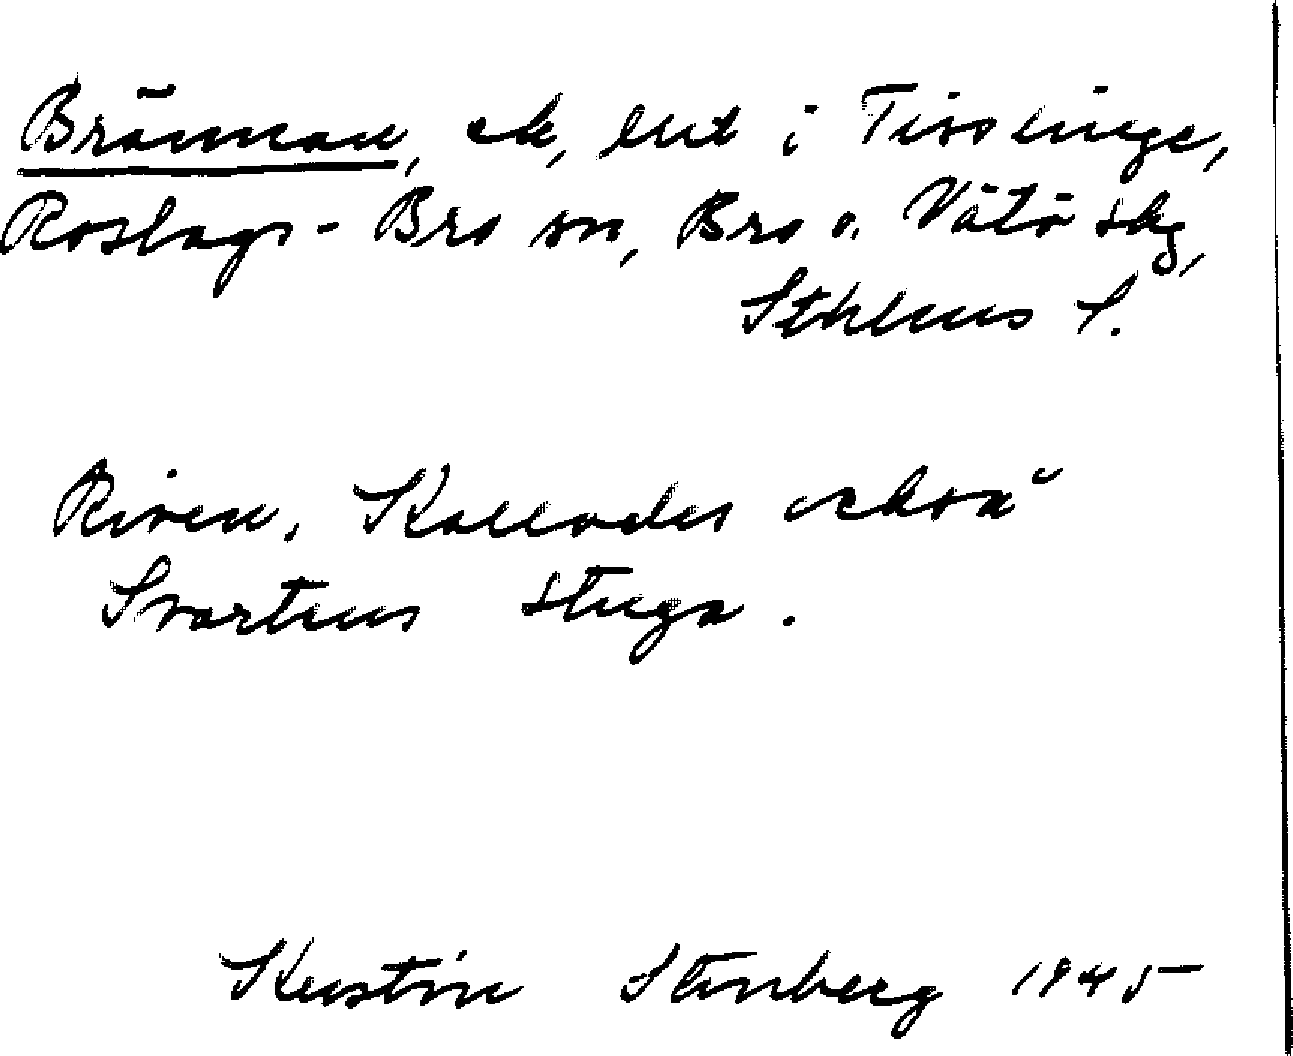 Brännan, ek, lht i Tisslinge,
Roslags-Bro sn, Bro o. Vätö skg,
Sthlms l.
Riven. Kallades också
Svartens stuga.
Kerstin Stenberg 1945